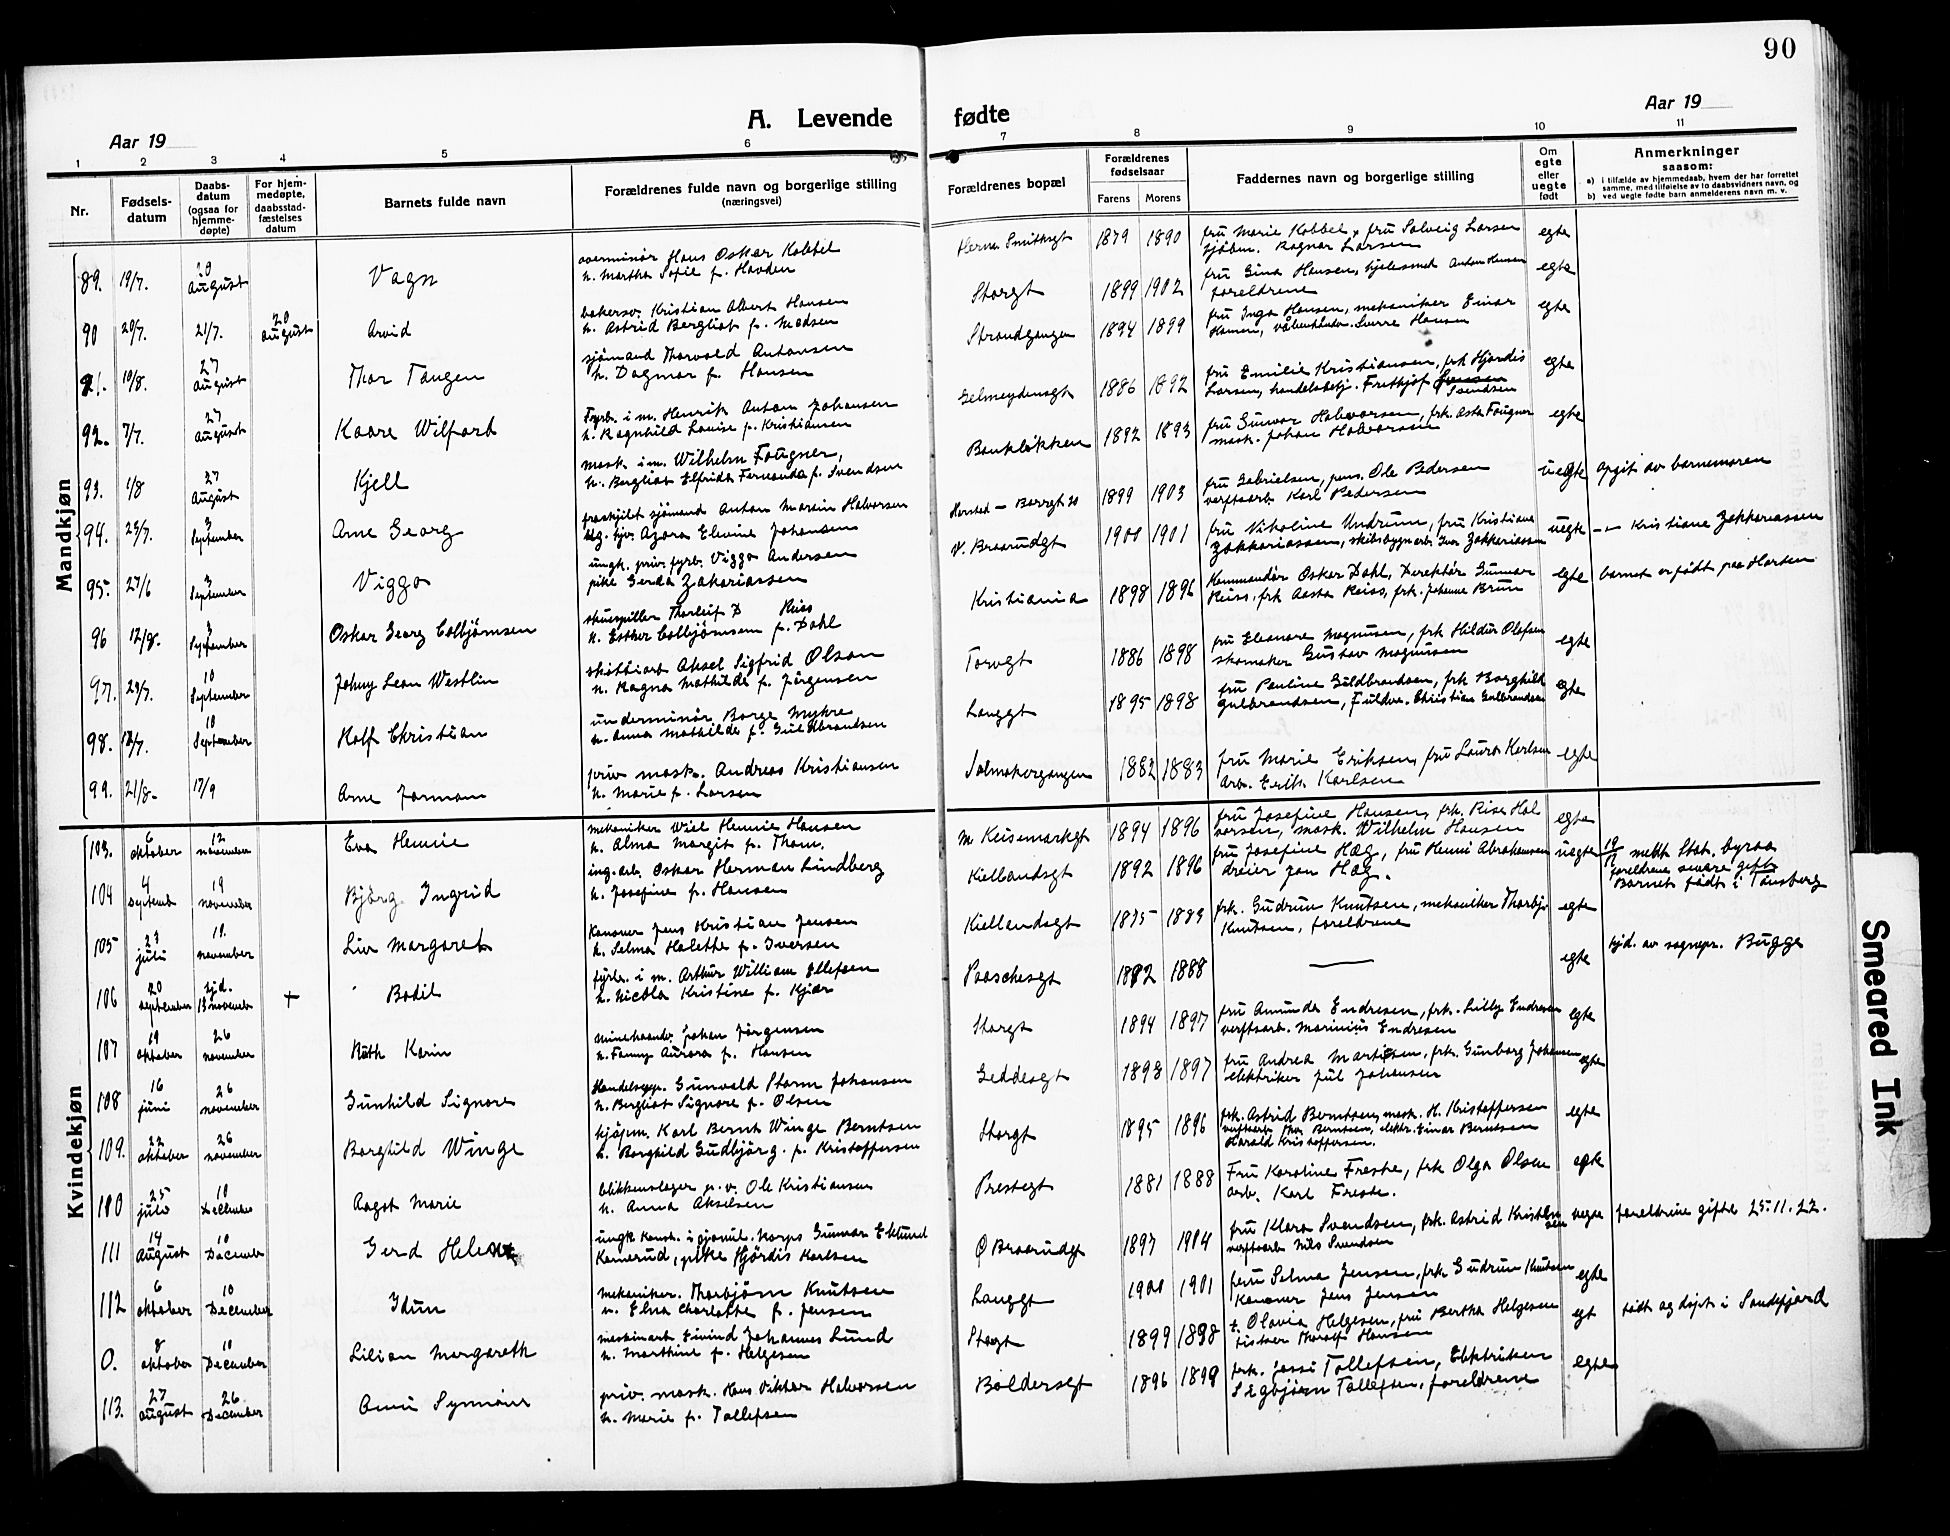 90
A. Levende fødte
Aar 19
Aar 19
1 2 3 4 5 6 7 8 9 10 11
Nr.
Fødsels-
datum
Daabs-
datum
(ogsaa for
hjemme-
døpte)
For hjem-
medøpte,
daabsstad-
fæstelses
datum
Barnets fulde navn
Forældrenes fulde navn og borgerlige stilling
(næringsvei)
Forældrenes bopæl
Forældrenes
fødselsaar
Farens Morens
Faddernes navn og borgerlige stilling
Om
egte
eller
uegte
født
Anmerkninger
saasom:
a) i tilfælde av hjemmedaab, hvem der har forrettet
samme, med tilføielse av to daabsvidners navn, og
b) ved uegte fødte barn anmelderens navn m. v.
Mandkjøn
89. 19/7. 20 August Vagn
overminör Hans Oskar Kobbel
h. Martha Sofie f. Havden
Herm. Smithsgt 1879 1890
fru Marie Kobbel, fru Solveig Larsen
sjöbm. Ragnar Larsen egte
90 20/7. 21/7. 20 August Arvid
bakersv. Kristian Albert Hansen
h. Astrid Bergliot f. Madsen
Storgt 1899 1902
fru Gina Hansen, hjelesmed Anton Hansen
foreldrene egte
91. 10/8. 27 August Thor Tangen
sjömand Thorvald Antonsen
h. Dagmar f. Hansen
Strandgangen 1894 1899
fru Inga Hansen, mekaniker Einar
Hansen, Sverre Hansen egte
92. 7/7. 27 August Kaare Wilfarb
Fyrb. i m. Henrik Anton Johansen
h. Ragnhild Louise f. Kristiansen
Gelmeydensgt 1886 1892
fru Emilie Kristiansen, frk Hjördis
Larsen, handelsbetj. Fritthjof Svendsen egte
93. 1/8 27 August Kjell
mask. i m. Wilhelm Fougner,
h. Bergliot Elfrida Fernanda f. Svendsen
Bankløkken 1892 1893
fru Gunvor Halvorsen, frk. Asta Fougner
mask. Johan Halvorsen egte
94. 23/7. 3 September Arne Georg
fraskjilt sjömand Anton Martin Halvorsen
Azora Elvine Johansen
Horsted – Borregt 20 1899 1903
fru Gabrielsen, pens. Ole Pedersen
verftsarb. Karl Pedersen uegte opgit av barnemoren
95. 27/6 3 September Viggo
ungk. priv. fyrb. Viggo Andersen
pike Gerda Zakariassen
V. Braarudgt 1900 1901
fru Nikoline Undrum, fru Kristiane
Zakkariassen, skibsbyggerarb. Ivar Zakkariassen uegte – " – Kristiane Zakkariassen
96 12/8. 3 September Oskar Georg Colbjørnsen
skuespiller Thorleif D Reiss
h. Esther Colbjörnsen f. Dahl
Kristiania 1898 1896
Kommandör Oskar Dahl, Direktör Gunnar
Reiss, frk Aasta Reiss, frk. Johanne Brun egte barnet er født paa Horten
97. 23/7. 10 September Johny Leon Westlin
Aksel Sigfrid Olson
h. Ragna Mathilde f. Jörgensen
Torvgt 1886 1898
fru Eleanore Magnusen, frk Hildur Olofsen
skomaker Gustav Magnusen egte
98. 10 September Rolf Christian
underminör Borge Myhre
h. Anna Mathilde f. Guldbrandsen
Langgt 1895 1898
fru Pauline Guldbrandsen, frk Borghild
Gulbrandsen, Christian Gulbrandsen egte
99. 21/8- 17/9 Arne Jormann
priv mask. Andreas Kristiansen
h. Marie f. Larsen
Salmakergangen 1882 1883
fru Marie Eriksen, fru Laura Karlsen
Arb. Erik Karlsen egte
Kvindekjøn
103. 6 oktober 12 november Eva Hennie
mekaniker Wiel Hennie Hansen
h. Alma Margit f. Thom.
M. Keisemarkgt 1894 1896
fru Josefine Hansen, frk. Risa Hal
vorsen, mask. Wilhelm Hansen egte
104 4 septemb 19 november Bjørg Ingrid
ing. arb. Oskar Herman Lindberg
h. Josefine f. Hansen
Kiellandsgt 1892 1896
fru Josefine Hæg, fru Henni Abrahamsen
dreier Jon Hæg. uegte meldt Stat. byraa
foreldrene senere gifte
Barnet født i Tønsberg
105 23 juli 19. november Liv Margaret
Kanoner Jens Kristian Jensen
h. Selma Halette f. Iversen
Kiellandsgt 1875 1883
frk. Gudrun Knutsen, mekaniker Thorbj.
Knutsen, foreldrene egte
106 20 september hjd. 13 november + Bodil
fyrb. i m. Arthur William Ellefsen
h. Nicola Kristine f. Kjær
Paaschesgt 1882 1888
— egte hjd. av sognepr. Bugge
107 19 oktober 26 november Ruth Karin
minehaandv. Johan Jörgensen
h. Fanny Aurora f. Hansen
Storgt 1894 1897
fru Amunda Endresen, frk. Lilly Endresen
verftsarb. Marinius Endresen egte
108 16 juni 26 november Gunhild Signora
Handelsgp. Gunvald Storm Johansen
h. Bergliot Signore f. Olsen
Geddesgt 1898 1897
fru Andrea Martisen, frk. Gunborg Johansen
elektriker Jul Johansen egte
109. 22 oktober 26 november Borghild Winge
kjøpm. Karl Bernt Winge Berntsen
h. Borghild Gudbjörg. f. Kristoffersen
Storgt 1895 1896
frk. Astrid Berntsen, mask. H. Kristoffersen
verftsarb. Thor Berntsen, elektr. Einar Berntsen
Harald Kristoffersen. egte
110 25 juli 10 December Aagot Marie
blikkenslager p. v. Ole Kristiansen
h. Anna Akselsen
Prestegt 1881 1888
Fru Karoline Freste, frk Olga Olsen
arb. Karl Freste. egte
111 14 August 10 December Gerd Helene
ungk. Gunnar Eklund
Kamerud, pike Hjördis Karlsen
Ø Braarudgt 1897 1904
fru Klara Svendsen, frk. Astrid Kristian
sen verftsarb Nils Svendsen uegte foreldrene gifte 25.11.22.
112 6 oktober 10 December Idun
mekaniker. Thorbjörn Knutsen
h. Elna Charlotte f. Jensen
Langgt 1900 1901
fru Selma Jensen, frk Gudrun Knutsen
Kanoner Jens Jensen egte
0. 8 oktober 10 December Lilian Margareth
maskinarb Eivind Johannes Lund
h. Marthine f. Helgesen
Storgt 1899 1898
f. Olavia Helgesen, fru Bertha Helgesen
Thoralf Hansen egt født og döpt i Sandefjord
113. 27 august 26 December Anni Synnöve
priv. mask. Hans Viktor Halvorsen
h. Marie f. Tollefsen
Baldersgt 1896 1899
frk. Jossi Tollefsen, Elektriker
Sigbjörn Tollefsen, foreldrene egte
Smeared Ink